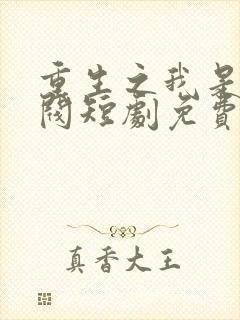 重生之我是
閥短劇免費
真香大王